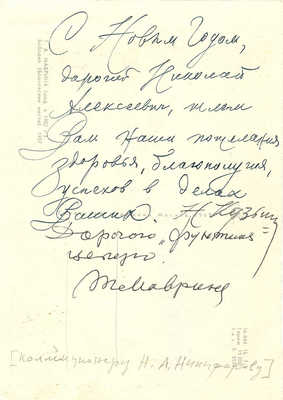 С Новым Годом,
дорогой Николай
Алексеевич, шлем
Вам наши пожелания
здоровья, благополучия,
успехов в делах
Ваших. Н Кузьмин
Дорогого „
ценю.
ТМаврина
[коллекционеру Н. А. Никифорову]